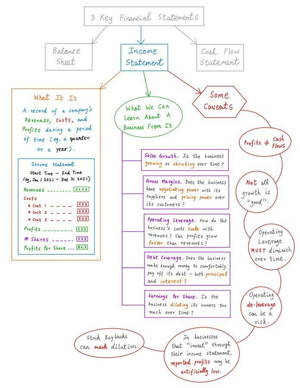 3 Key Financial Statements
Balance
Sheet
Income
Statement
Cash Flow
Statement
What It Is
A record of a company's
Revenues, Costs, and
Profits during a period
of time (eg, a quarter
or a year).
Income Statement
Start Time – End Time
(eg, Jan 1 2021 – Dec 31 2021)
Revenues XXXX
Costs
• Cost 1 XXX
• Cost 2 XXX
• Cost 3 XXX
Profits XXX
# Shares XXX
Profits Per Share X.X
What We Can
Learn About A
Business From It
Sales Growth. Is the business
growing or shrinking over time?
Gross Margins. Does the business
have negotiating power with its
suppliers and pricing power over
its customers?
Operating Leverage. How do the
business's costs scale with
revenues? Can profits grow
faster than revenues?
Debt Coverage. Does the business
make enough money to comfortably
pay off its debt – both principal
and interest?
Earnings Per Share. Is the
business diluting its owners too
much over time?
Some
Caveats
Profits ≠ cash
flows
Not all
growth is
"good".
Operating
Leverage
MUST diminish
over time.
Operating
de-leverage
can be a
risk.
In businesses
that "invest" through
their income statement,
reported profits may be
artificially low.
Stock Buybacks
can mask dilution.